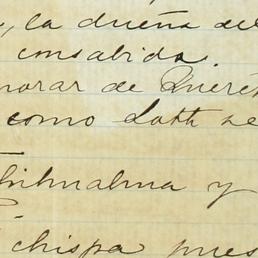 , la dueña del
consabida.
morar de Queré
como Loth se
Chihualma y
chispa pues